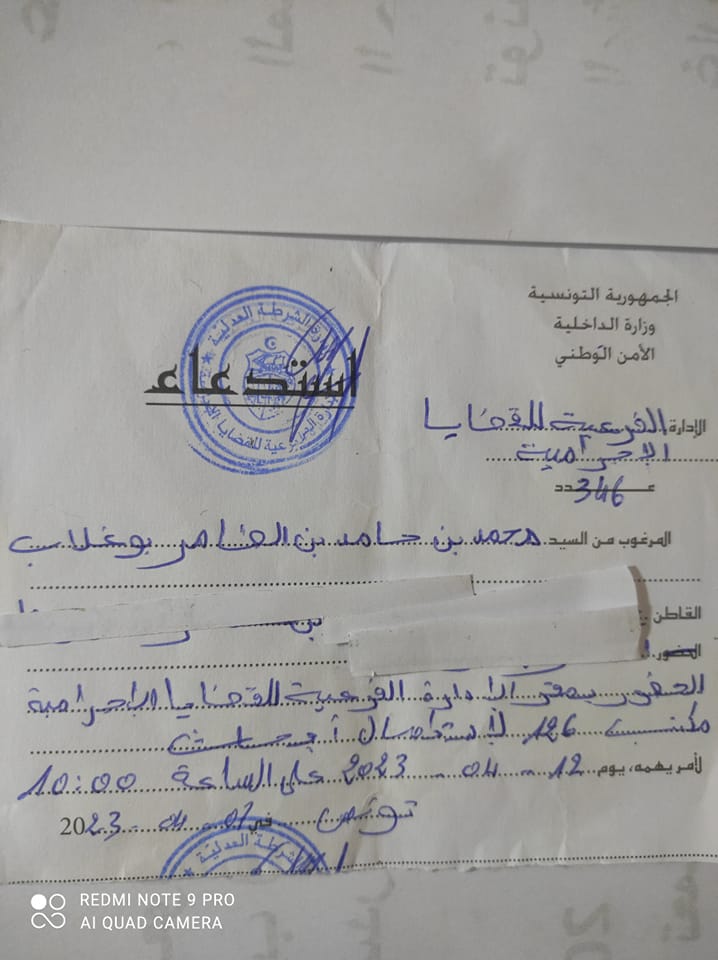 الجمهورية التونسية
وزارة الداخلية
الأمن الوطني
استدعاء
إدارة الشرطة العدلية
الإدارة الفرعية للقضايا
الإجرامية
عـ 346 ـدد
المرغوب من السيد محمد بن حامد بن الضاهر بوغلاب
القاطن بن
الحضور
الحضور بمقر الإدارة الفرعية للقضايا الإجرامية
مكتب 126 لاستكمال أبحاث
لأمر يهمه، يوم 12 - 04 - 2023 على الساعة 10:00
تونس في 07 - 04 - 2023
الشرطة العدلية
REDMI NOTE 9 PRO
AI QUAD CAMERA